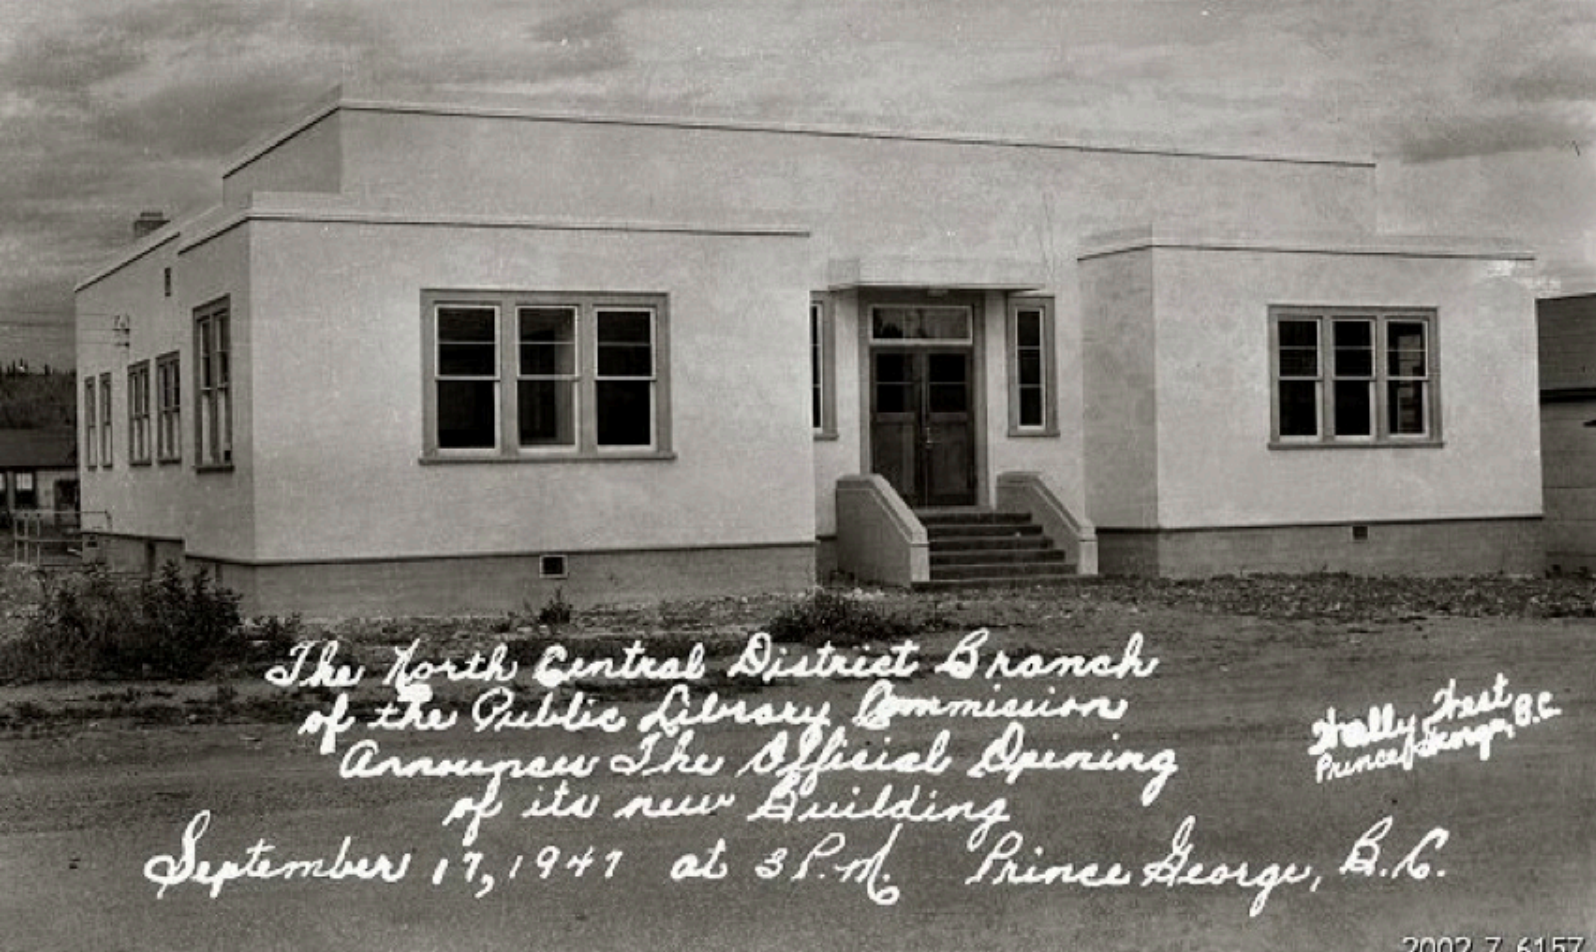 The North Central District Branch
of the Public Library Commission
Announces The Official Opening
of its new Building
September 17, 1947 at 3 P.M. Prince George, B.C.
Wally West
Prince George, B.C.
2002.7.6157